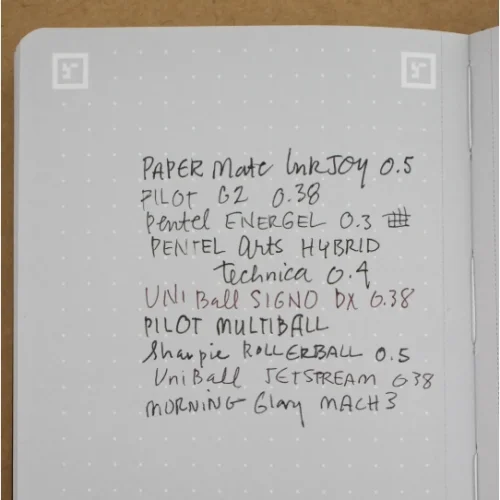 PAPER Mate InkJOY 0.5
PILOT G2 0.38
Pentel ENERGEL 0.3
PENTEL Arts HYBRID
technica 0.4
UNI Ball SIGNO DX 0.38
PILOT MULTIBALL
Sharpie ROLLERBALL 0.5
UniBall JETSTREAM 038
MORNING Glory MACH 3